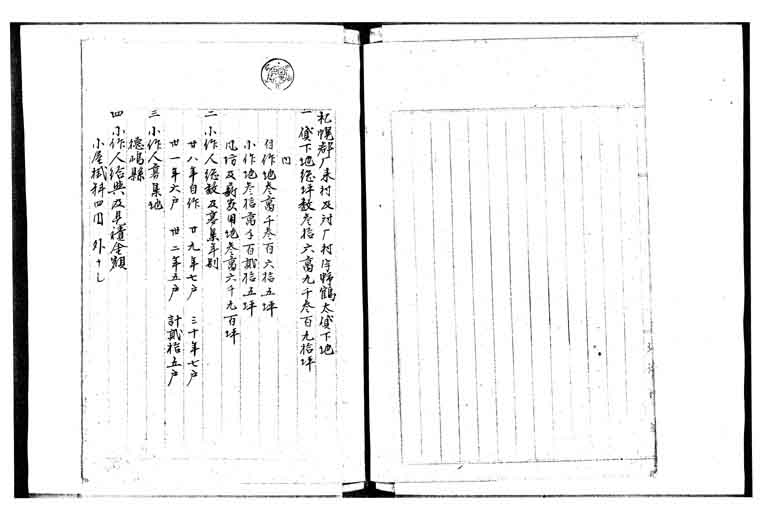 札幌郡厂来村及対厂村字野鶴太貸下地
一 貸下地総坪数参拾六萬九千参百九拾坪
内
自作地参萬千参百六拾五坪
小作地参拾萬千百貳拾五坪
風防及薪炭用地参萬六千九百坪
二 小作人総数及募集年別
廿八年自作 廿九年七戸 三十年七戸
卅一年六戸 卅二年五戸 計貳拾五戸
三 小作人募集地
徳嶋縣
四 小作人給與及見積金額
小屋掛料四円 外ナシ